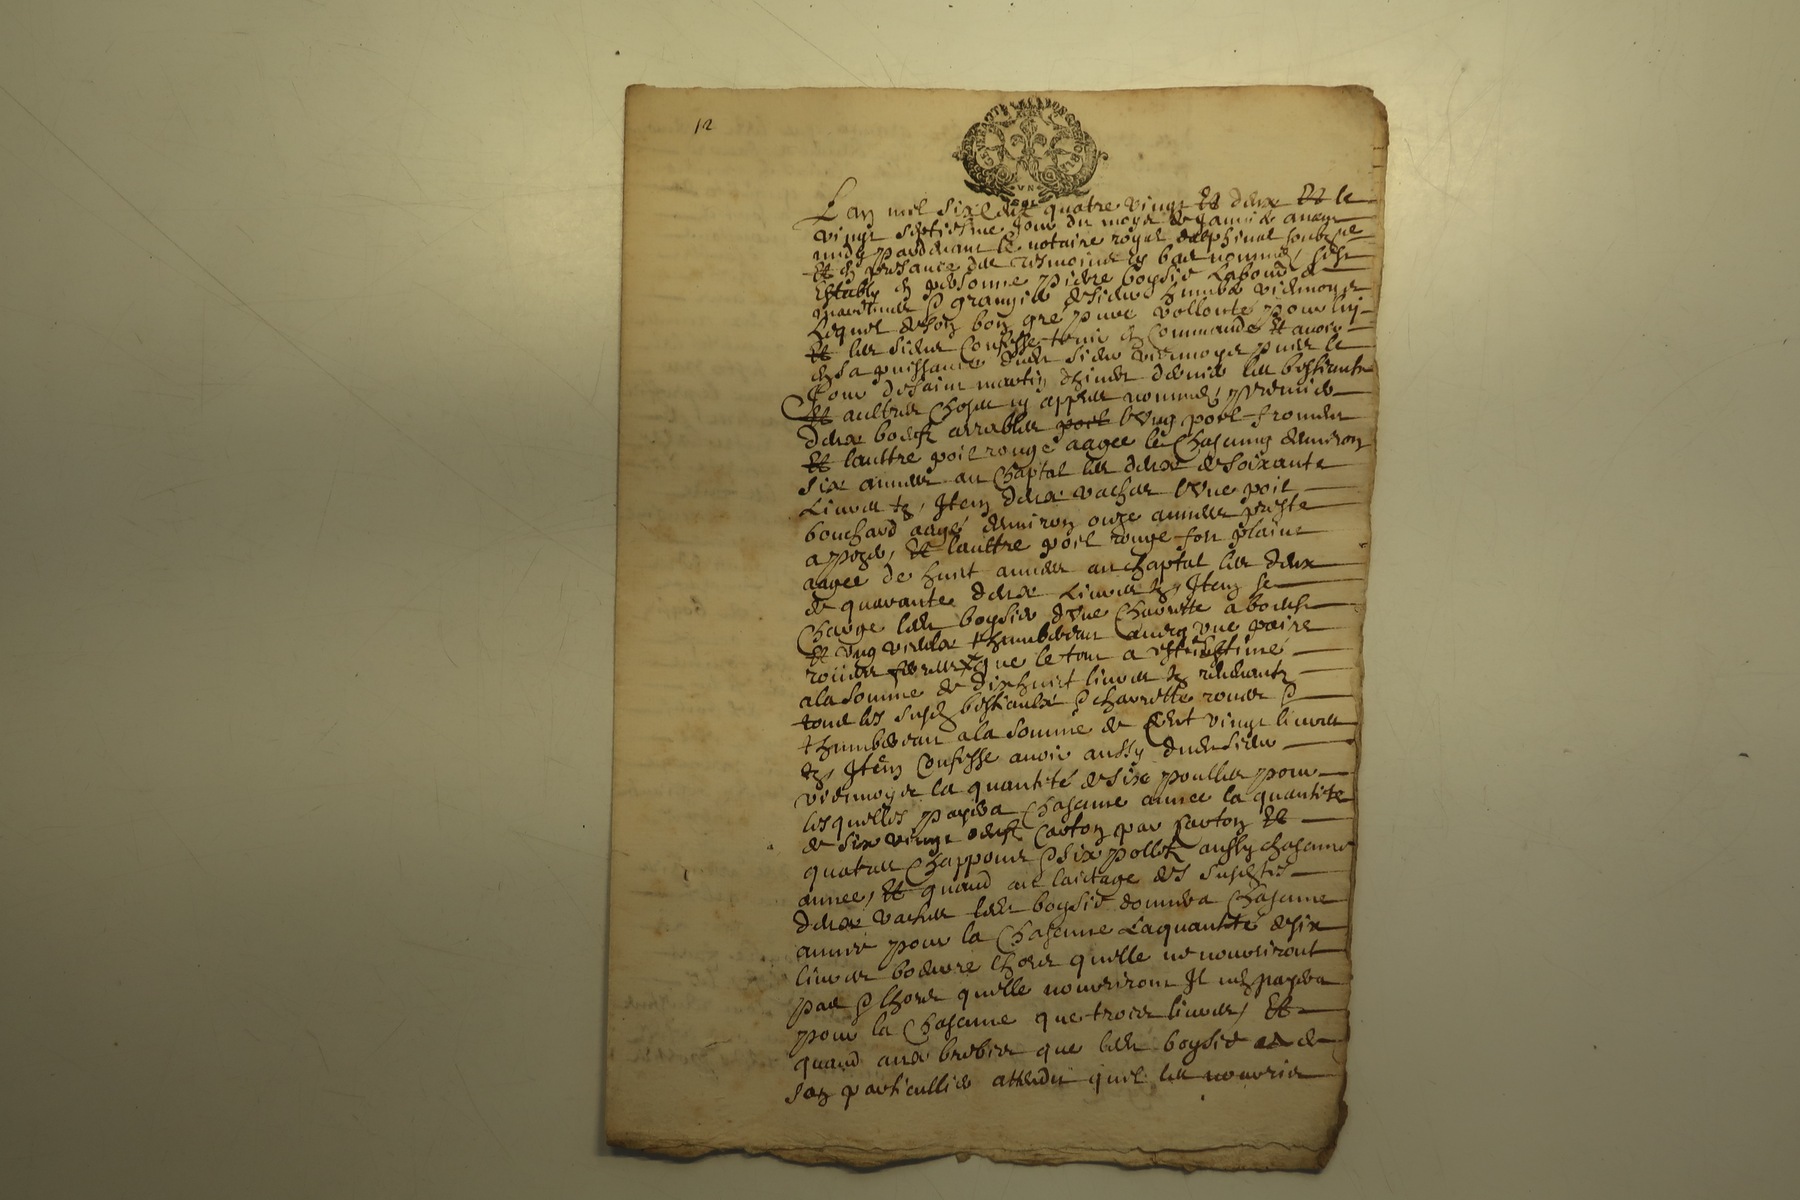 12
VN
Lan mil six cent quatre vingt Et deux Et le
vingt septiesme Jour du moys de Janvier avant
midy pardevant le notaire royal dalphinal soubsigne
Et en presance des tesmoins cy bas nommes, sest
Estably en personne pierre boysie Labour
granger de sieur
Lequel de son bon gre pure vollonté pour luy
Et les siens Confesse tenir en Commande Et avoir
en sa puissance dudit sieur puis le
Jour de saint martin dernier les bestiaulx
Et aultres Choses cy appres nommes, premier
deux boeufs arrables Lung poil froment
Et laultre poil rouge aages le Chascung denviron
six annees au Chaptal les deux de soixante
Livres tz, Item deux vaches Lune poil
bouchard aagé denviron onze annees preste
a , Et laultre poil rouge fort plaine
aagee de huit annees au Chaptal les deux
de quarante deux Livres tz, Item se
Charge ledit boysie dune Charette a boeufs
Et ung vieulx thumbereau une paire
roües que le tout a esté Estimé
a la somme de dixhuit livres tz
tous les susd bestiaulx charette roues
thumbereau a la somme de Cent vingt livres
tz, Item Confesse avoir aussy dudit sieur
la quantité de six poulles pour
lesquelles payera Chascune annee la quantité
de six vingt oeufs Carton par Carton Et
quatre Chappons six pollets aussy chascune
annee, Et quand au laictage des susdites
deux vaches ledit boysie donnera Chascune
année pour la Chascune La quantité de six
livres beurre Lhors quelle ne nourriront
pas Lhors quelle nourriront Il ne payera
pour la Chascune que trois livres, Et
quand aux brebis que ledit boysie a de
son particullier attendu quil les nourrit